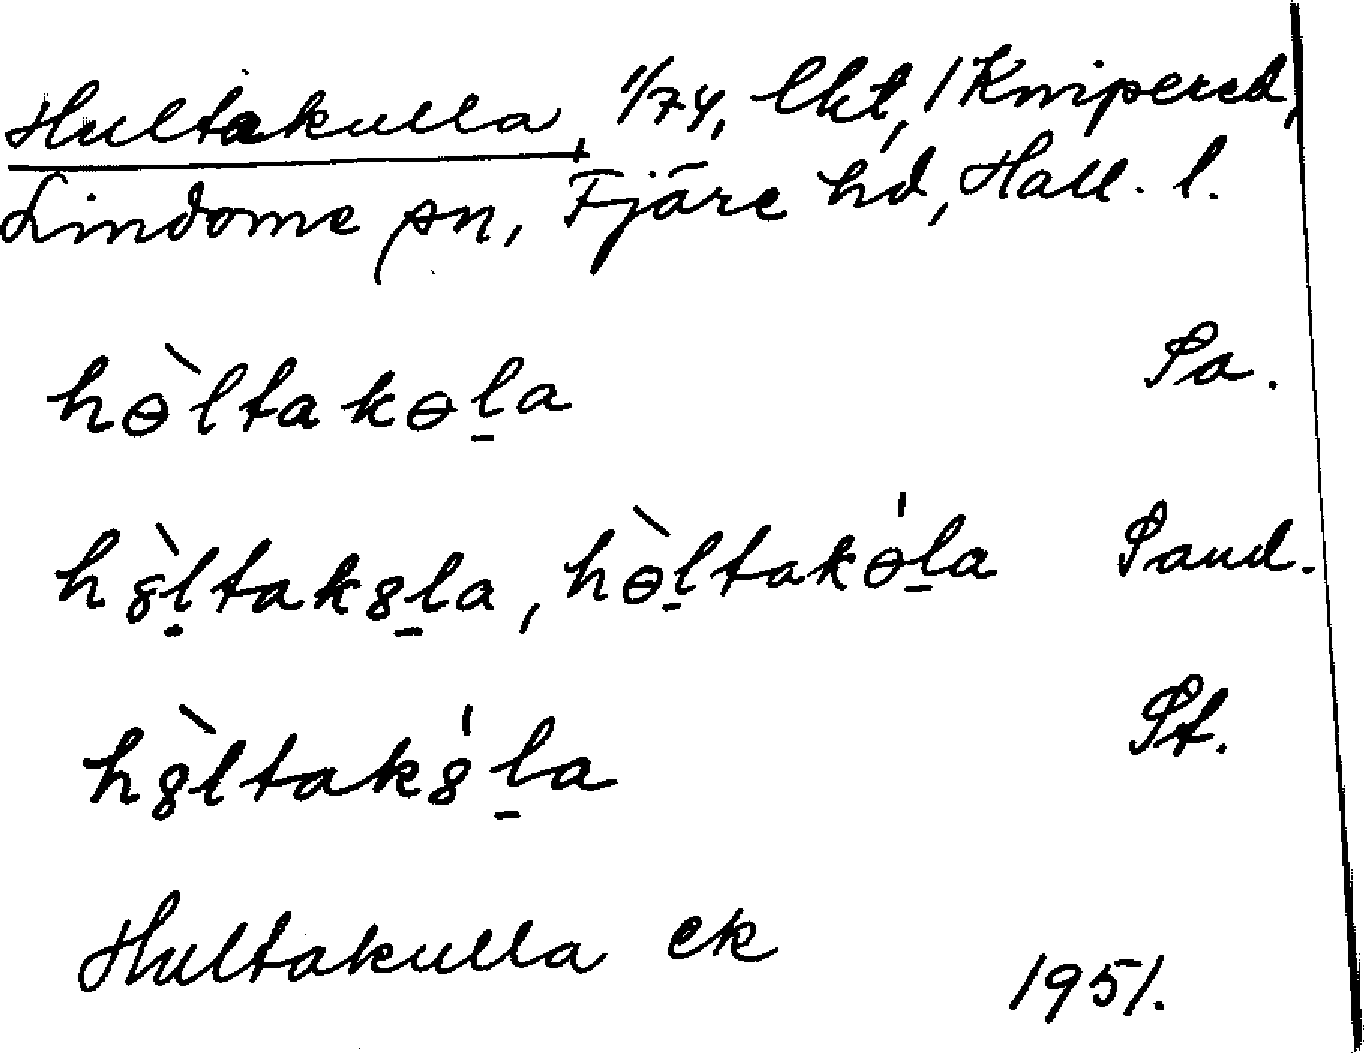 Hultakulla, 1/74, lkt, / Knipered,
Lindome sn, Fjäre hd, Hall. l.
hɵ̀ltakɵl̠a Sa.
h8̀l̠tak8l̠a, hɵ̀l̠takɵ́l̠a Sand.
h8̀ltak8́l̠a St.
Hultakulla ek
1951.